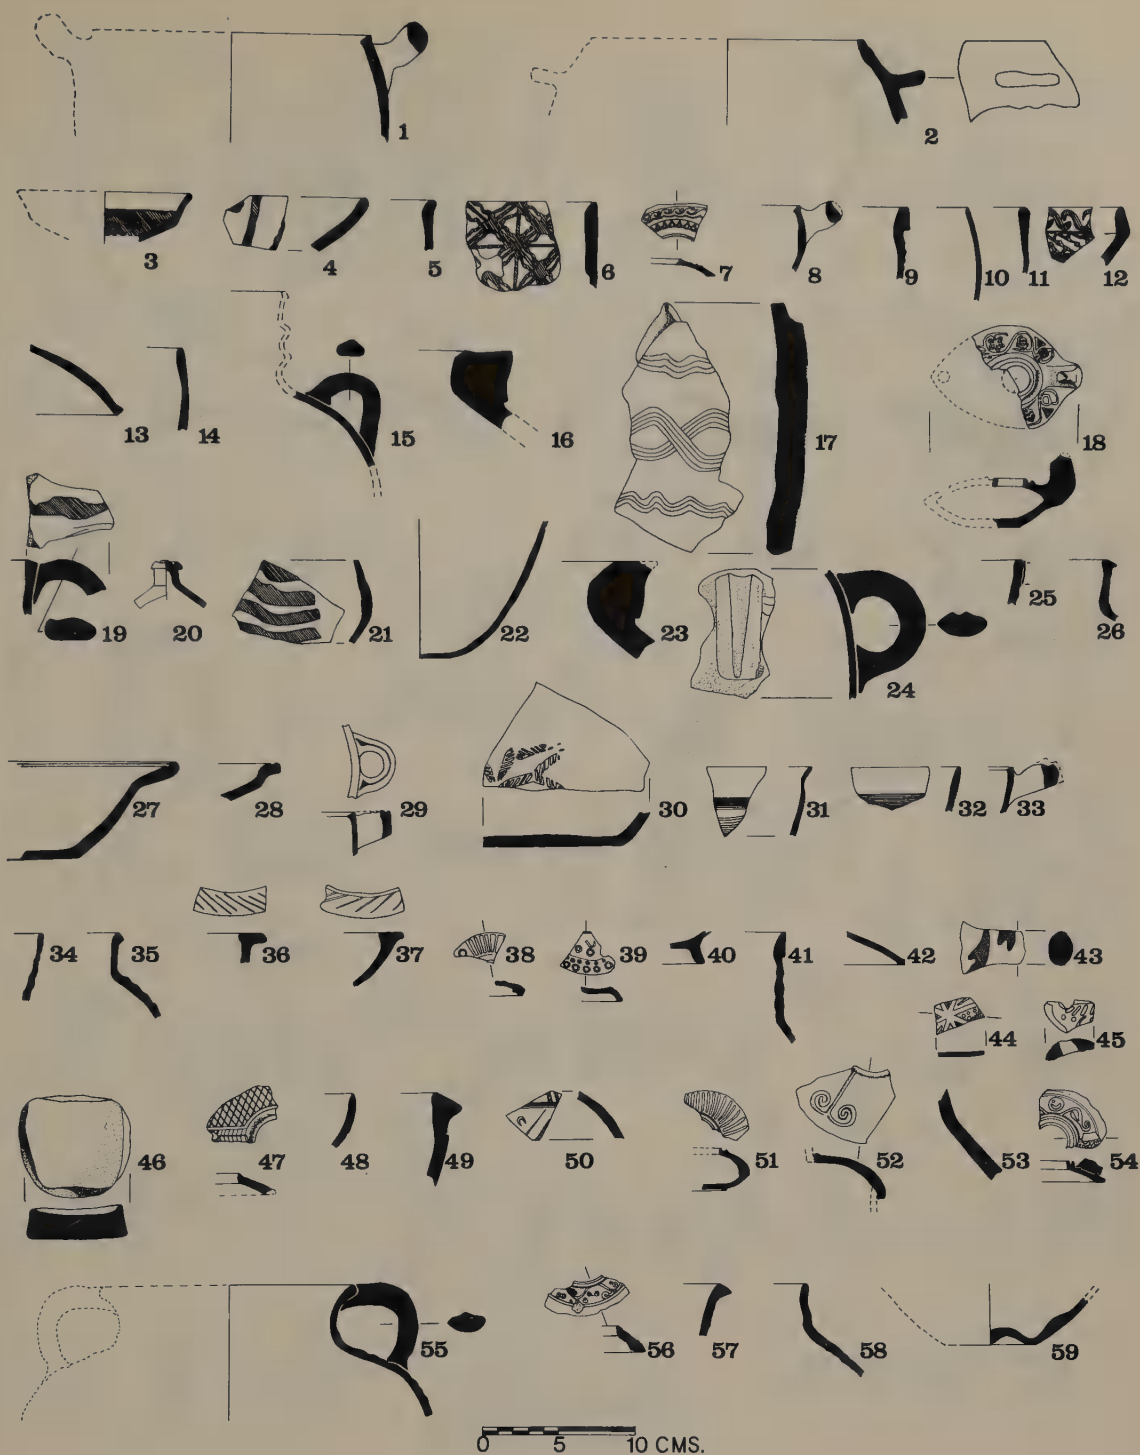 1 2
3 4 5 6 7 8 9 10 11 12
13 14 15 16 17 18
19 20 21 22 23 24 25 26
27 28 29 30 31 32 33
34 35 36 37 38 39 40 41 42 43
44 45
46 47 48 49 50 51 52 53 54
55 56 57 58 59
0 5 10 CMS.